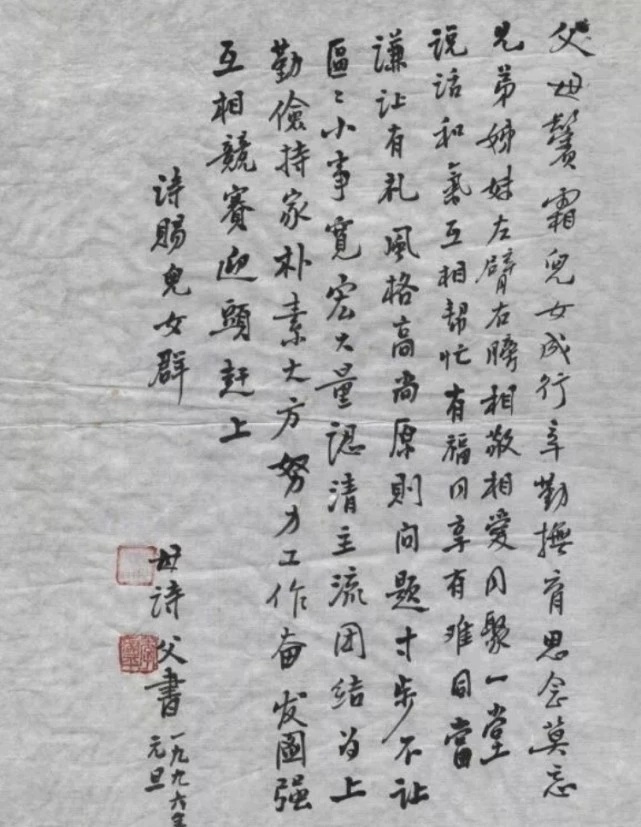 父母鬢霜兒女成行辛勤撫育思念莫忘
兄弟姊妹左臂右膀相敬相愛同聚一堂
说话和氣互相帮忙有福同享有难同當
谦让有礼風格高尚原則问题寸步不让
區々小事寬宏大量認清主流团结为上
勤儉持家朴素大方努力工作奋发國强
互相競賽迎頭赶上
诗賜兒女群
母诗父書
一九九六年
元旦